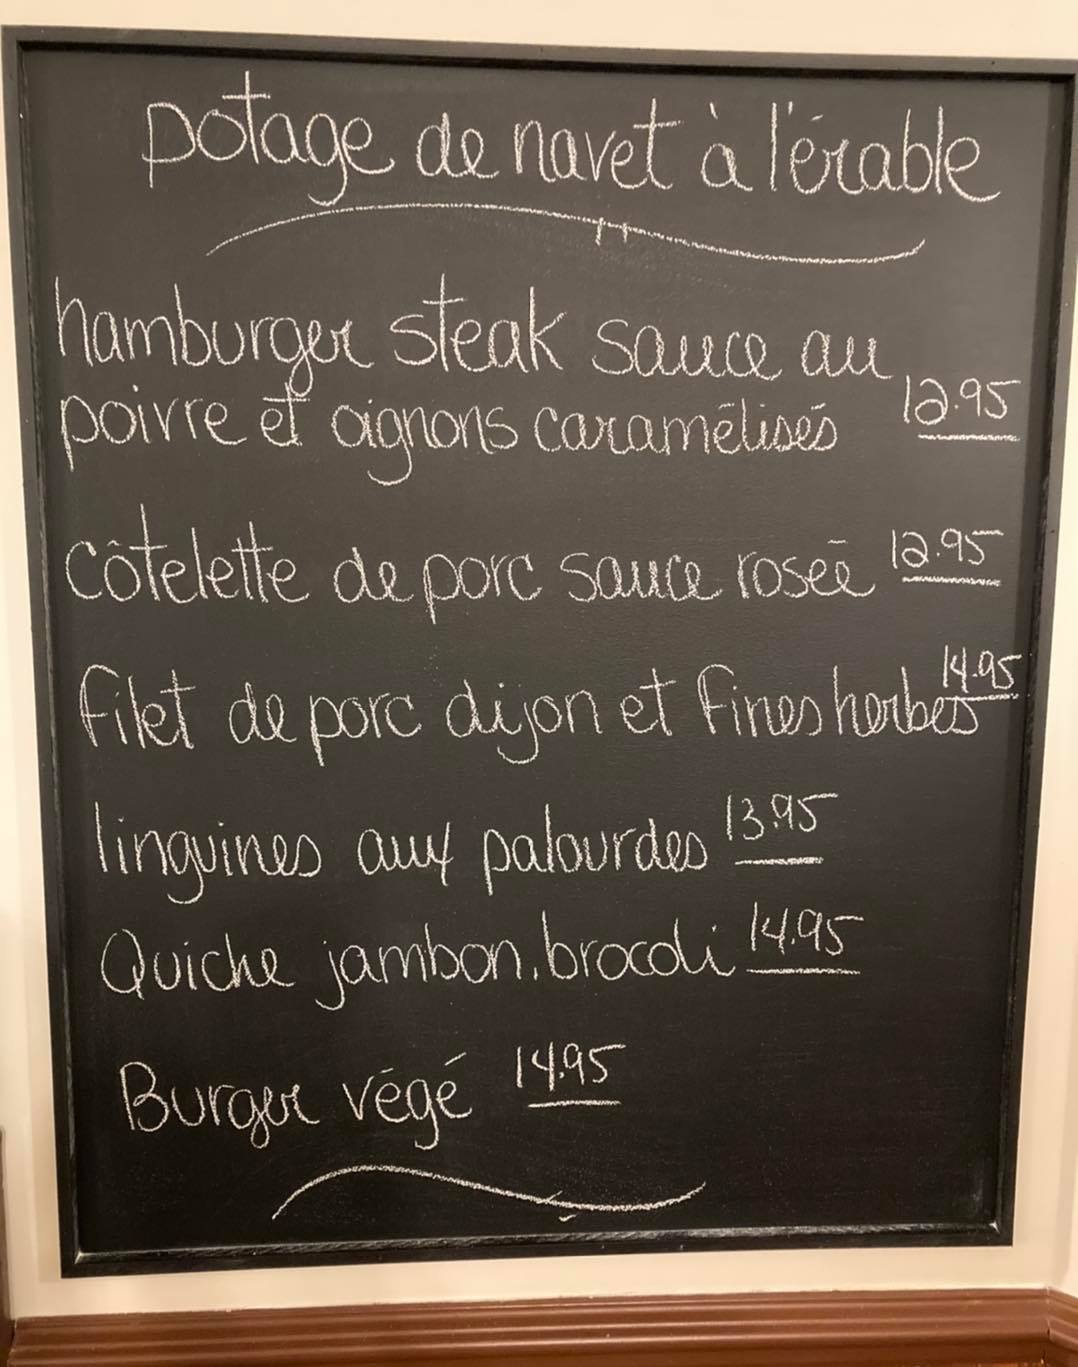 potage de navet à l'érable
hamburger steak sauce au
poivre et oignons caramélisés 12.95
côtelette de porc sauce rosée 12.95
filet de porc dijon et fines herbes 14.95
linguines aux palourdes 13.95
Quiche jambon. brocoli 14.95
Burger végé 14.95